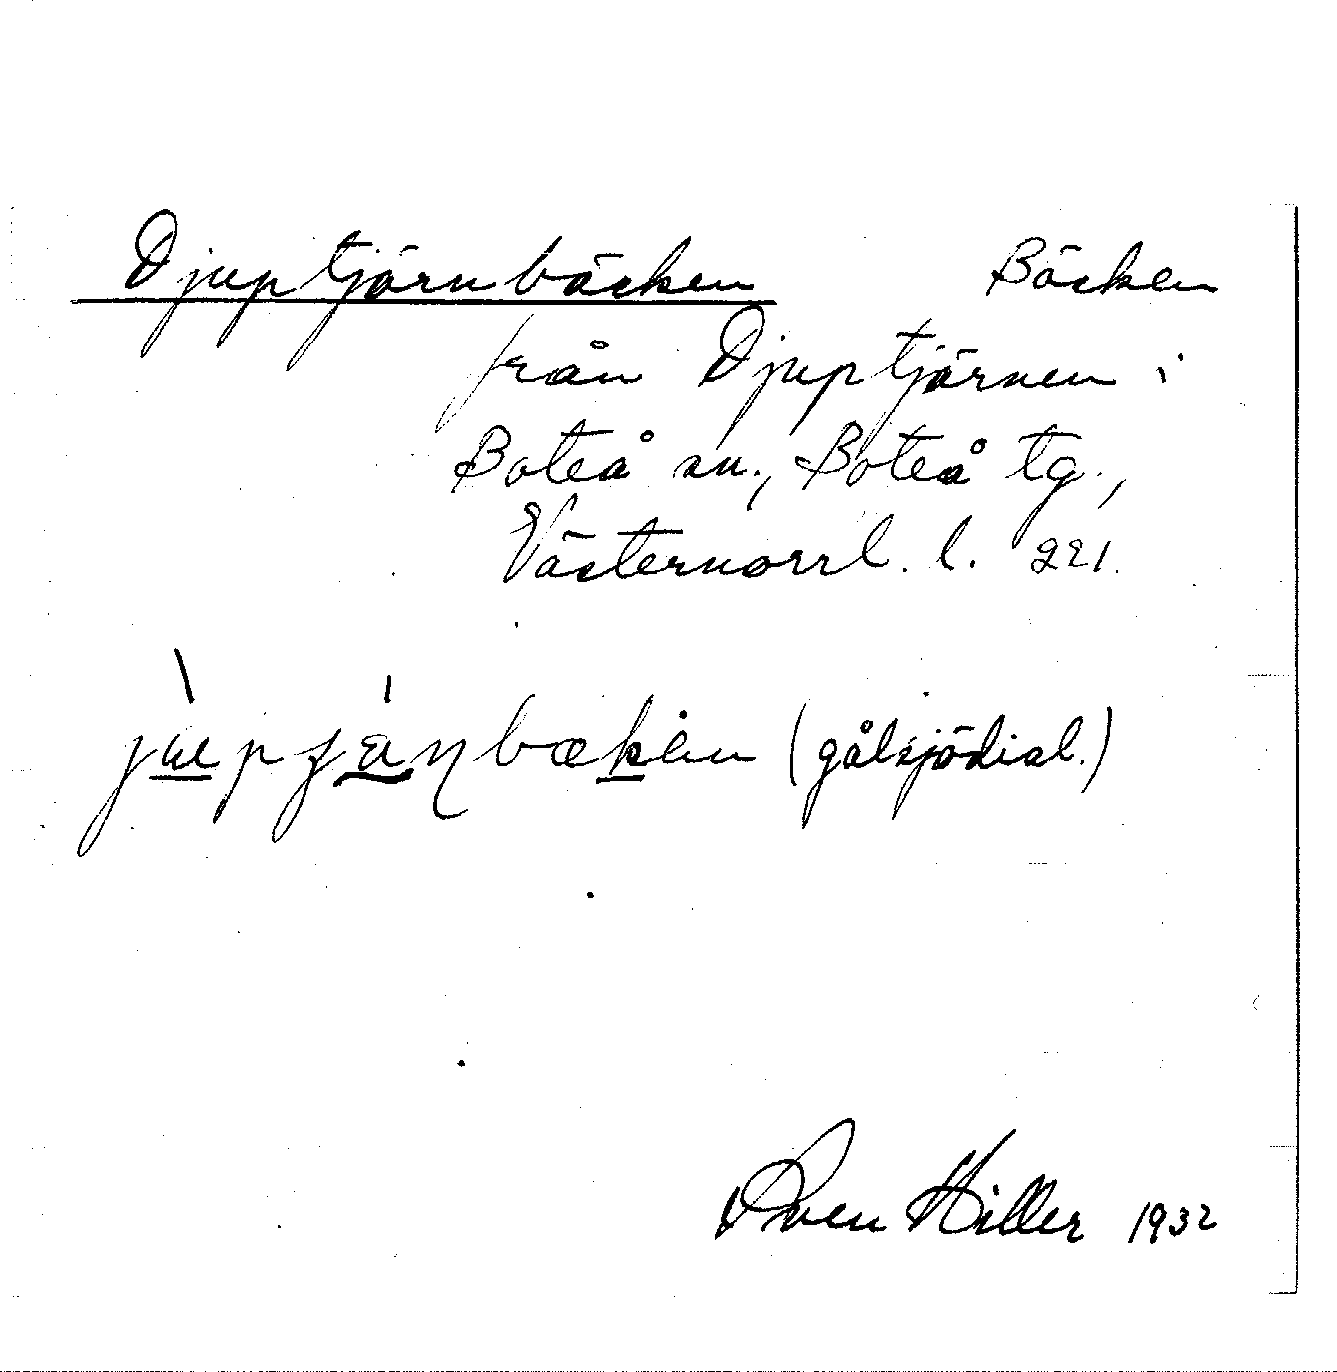 Djuptjärnbäcken Bäcken
från Djuptjärnen i
Boteå sn., Boteå tg.,
Västernorrl. l. 221.
(gålsjödial.)
Sven Hiller 1932